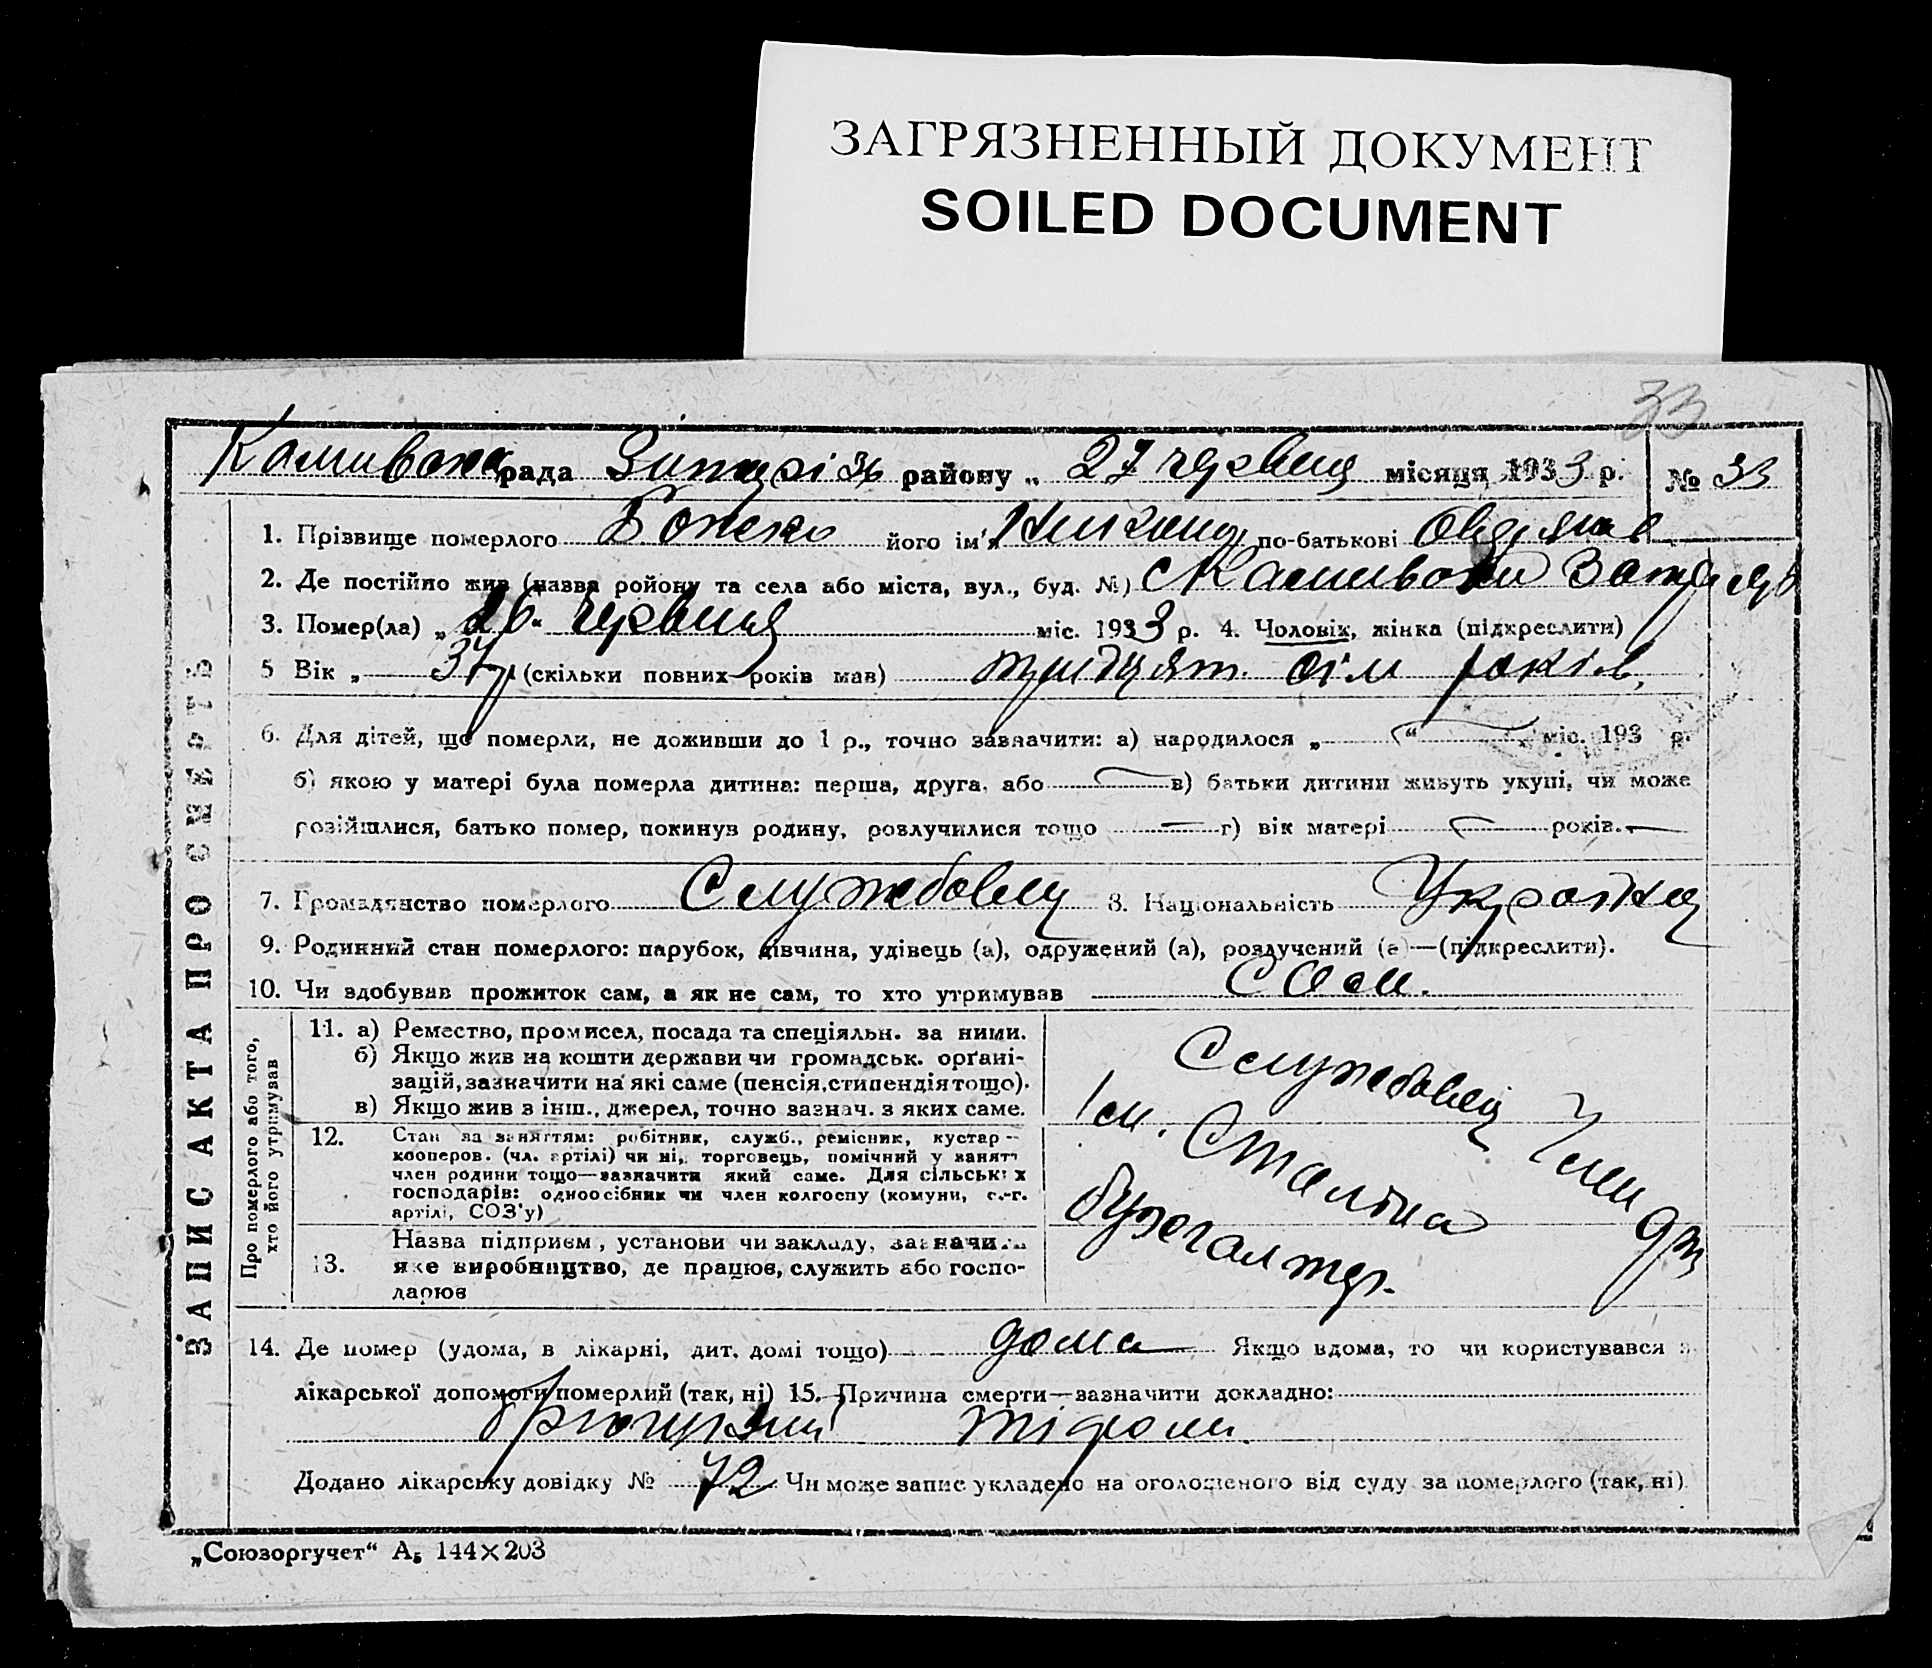 ЗАГРЯЗНЕННЫЙ ДОКУМЕНТ
SOILED DOCUMENT
33
рада району „ 27 червця місяця 1933 р. № 33
1. Прізввище померлого його ім'я по-батькові
2. Де постійно жив (назва ройону та села або міста, вул., буд. №)
3. Помер(ла) „ 26 “ червця міс. 1933 р. 4. Чоловік, жінка (підкреслити)
5 Вік „ 37 (скільки повних років мав) тридцят сім років,
6. Для дітей, що померли, не доживши до 1 р., точно зазначити: а) народилося „ “ міс. 193 р.
б) якою у матері була померла дитина: перша, друга, або в) батьки дитини живуть укупі, чи може
розійшлися, батько помер, покинув родину, розлучилися тощо г) вік матері років.
7. Громадянство померлого Службовец 8. Національність
9. Родинний стан померлого: парубок, дівчина, удівець (а), одружений (а), розлучений (а)—(підкреслити).
10. Чи здобував прожиток сам, а як не сам, то хто утримував сам.
ЗАПИС АКТА ПРО СМЕРТЬ
Про померлого або того, хто його утримував
11. а) Ремество, промисел, посада та спеціяльн. за ними.
б) Якщо жив на кошти держави чи громадськ. орґані-
зацій, зазначити на які саме (пенсія, стипендія тощо).
в) Якщо жив з інш., джерел, точно зазнач. з яких саме.
Службовец
ім. Сталіна
бухгалтер.
12. Стан за заняттям: робітник, служб., ремісник, кустар—
кооперов. (чл. артілі) чи ні, торговець, помічний у занятт
член родини тощо—зазначити який саме. Для сільських
господарів: одноосібник чи член колгоспу (комуни, с.-г.
артілі, СОЗ'у)
13. Назва підприєм, установи чи закладу, зазначити
яке виробництво, де працює, служить або госпо-
дарює
14. Де помер (удома, в лікарні, дит. домі тощо) дома Якщо вдома, то чи користувався з
лікарської допомоги померлий (так, ні) 15. Причина смерти—зазначити докладно:
тіфом.
Додано лікарську довідку № 72 Чи може запис укладено на оголошеного від суду за померлого (так, ні)
„Союзоргучет“ А5 144×203